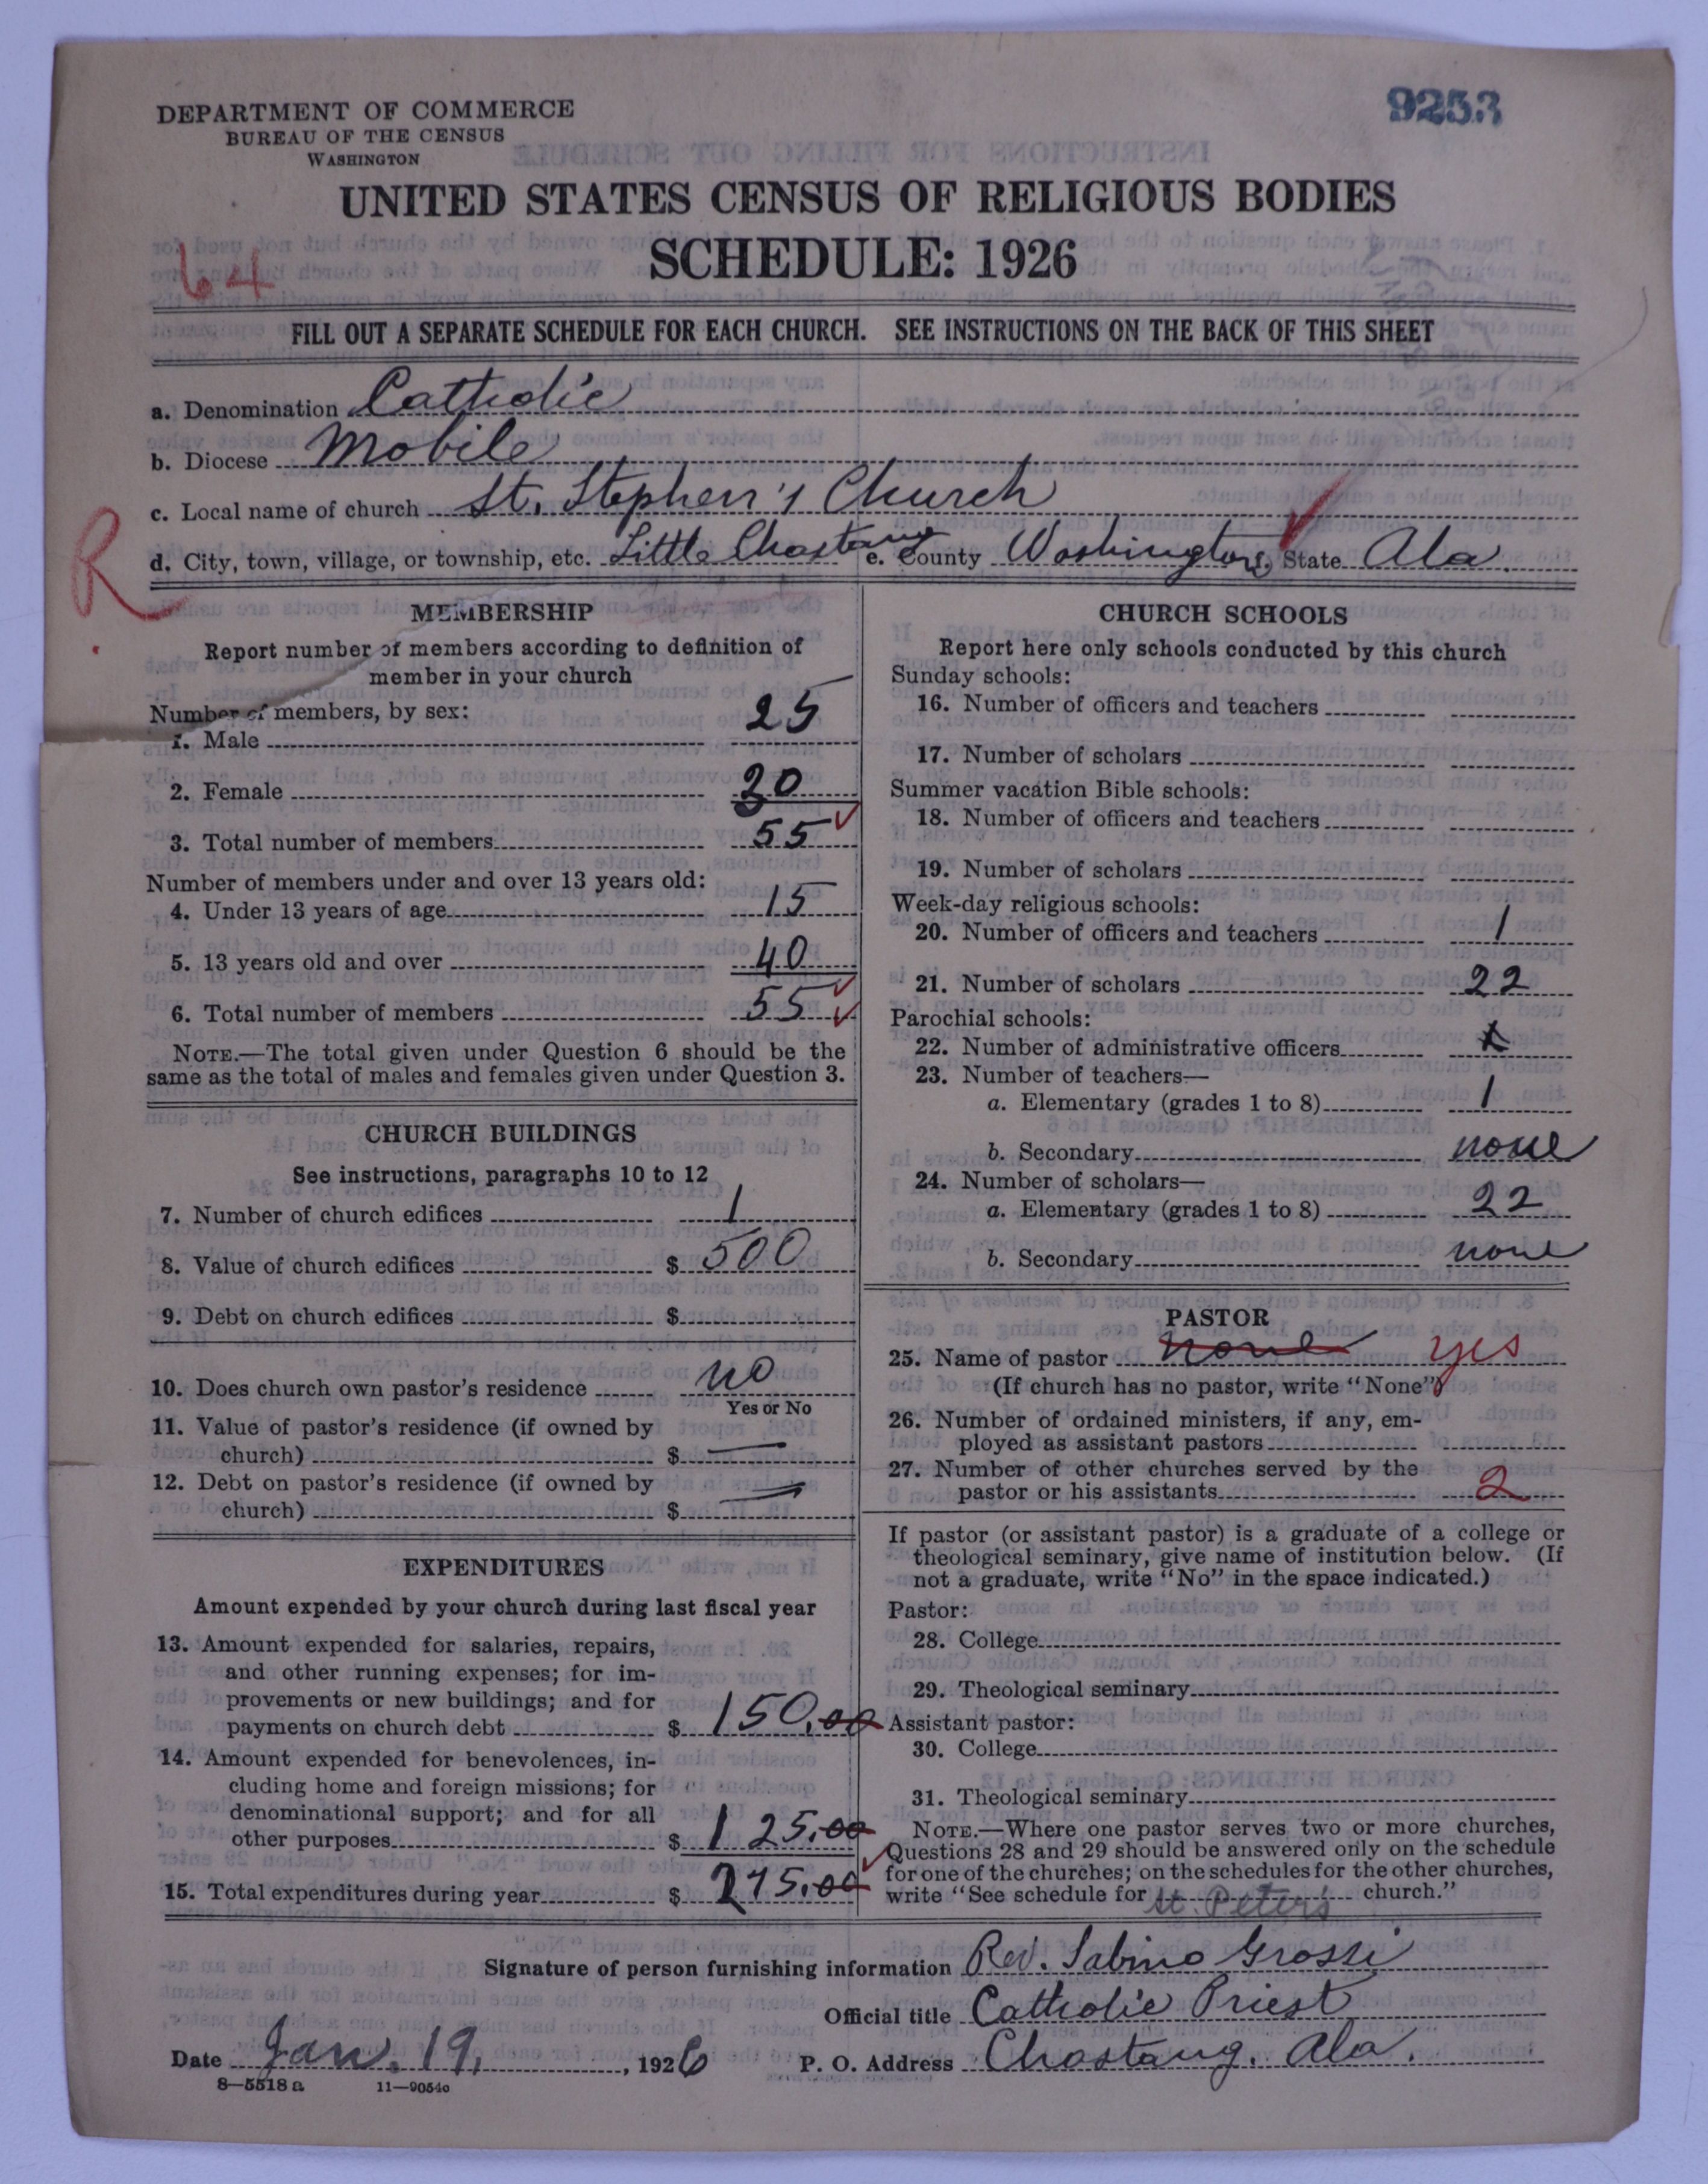 DEPARTMENT OF COMMERCE
BUREAU OF THE CENSUS
WASHINGTON
9253
UNITED STATES CENSUS OF RELIGIOUS BODIES
SCHEDULE: 1926
64
FILL OUT A SEPARATE SCHEDULE FOR EACH CHURCH. SEE INSTRUCTIONS ON THE BACK OF THIS SHEET
a. Denomination Catholic
b. Diocese Mobile
c. Local name of church St. Stephen's Church
d. City, town, village, or township, etc. Little Chastang e. County Washington f. State Ala.
R.
MEMBERSHIP
Report number of members according to definition of
member in your church
Number of members, by sex:
1. Male 25
2. Female 30
3. Total number of members 55
Number of members under and over 13 years old:
4. Under 13 years of age 15
5. 13 years old and over 40
6. Total number of members 55
NOTE.—The total given under Question 6 should be the
same as the total of males and females given under Question 3.
CHURCH BUILDINGS
See instructions, paragraphs 10 to 12
7. Number of church edifices 1
8. Value of church edifices $ 500
9. Debt on church edifices $
10. Does church own pastor's residence no
Yes or No
11. Value of pastor's residence (if owned by
church) $ —
12. Debt on pastor's residence (if owned by
church) $ —
EXPENDITURES
Amount expended by your church during last fiscal year
13. Amount expended for salaries, repairs,
and other running expenses; for im-
provements or new buildings; and for
payments on church debt $ 150.00
14. Amount expended for benevolences, in-
cluding home and foreign missions; for
denominational support; and for all
other purposes $ 125.00
15. Total expenditures during year $ 275.00
CHURCH SCHOOLS
Report here only schools conducted by this church
Sunday schools:
16. Number of officers and teachers
17. Number of scholars
Summer vacation Bible schools:
18. Number of officers and teachers
19. Number of scholars
Week-day religious schools:
20. Number of officers and teachers 1
21. Number of scholars 22
Parochial schools:
22. Number of administrative officers
23. Number of teachers—
a. Elementary (grades 1 to 8) 1
b. Secondary none
24. Number of scholars—
a. Elementary (grades 1 to 8) 22
b. Secondary none
PASTOR
25. Name of pastor none yes
(If church has no pastor, write "None")
26. Number of ordained ministers, if any, em-
ployed as assistant pastors
27. Number of other churches served by the
pastor or his assistants 2
If pastor (or assistant pastor) is a graduate of a college or
theological seminary, give name of institution below. (If
not a graduate, write "No" in the space indicated.)
Pastor:
28. College
29. Theological seminary
Assistant pastor:
30. College
31. Theological seminary
NOTE.—Where one pastor serves two or more churches,
Questions 28 and 29 should be answered only on the schedule
for one of the churches; on the schedules for the other churches,
write "See schedule for St. Peter's church."
Signature of person furnishing information Rev. Sabino Grossi
Official title Catholic Priest
Date Jan. 19, 1926 P. O. Address Chastang, Ala.
8—5518 a 11—9054c